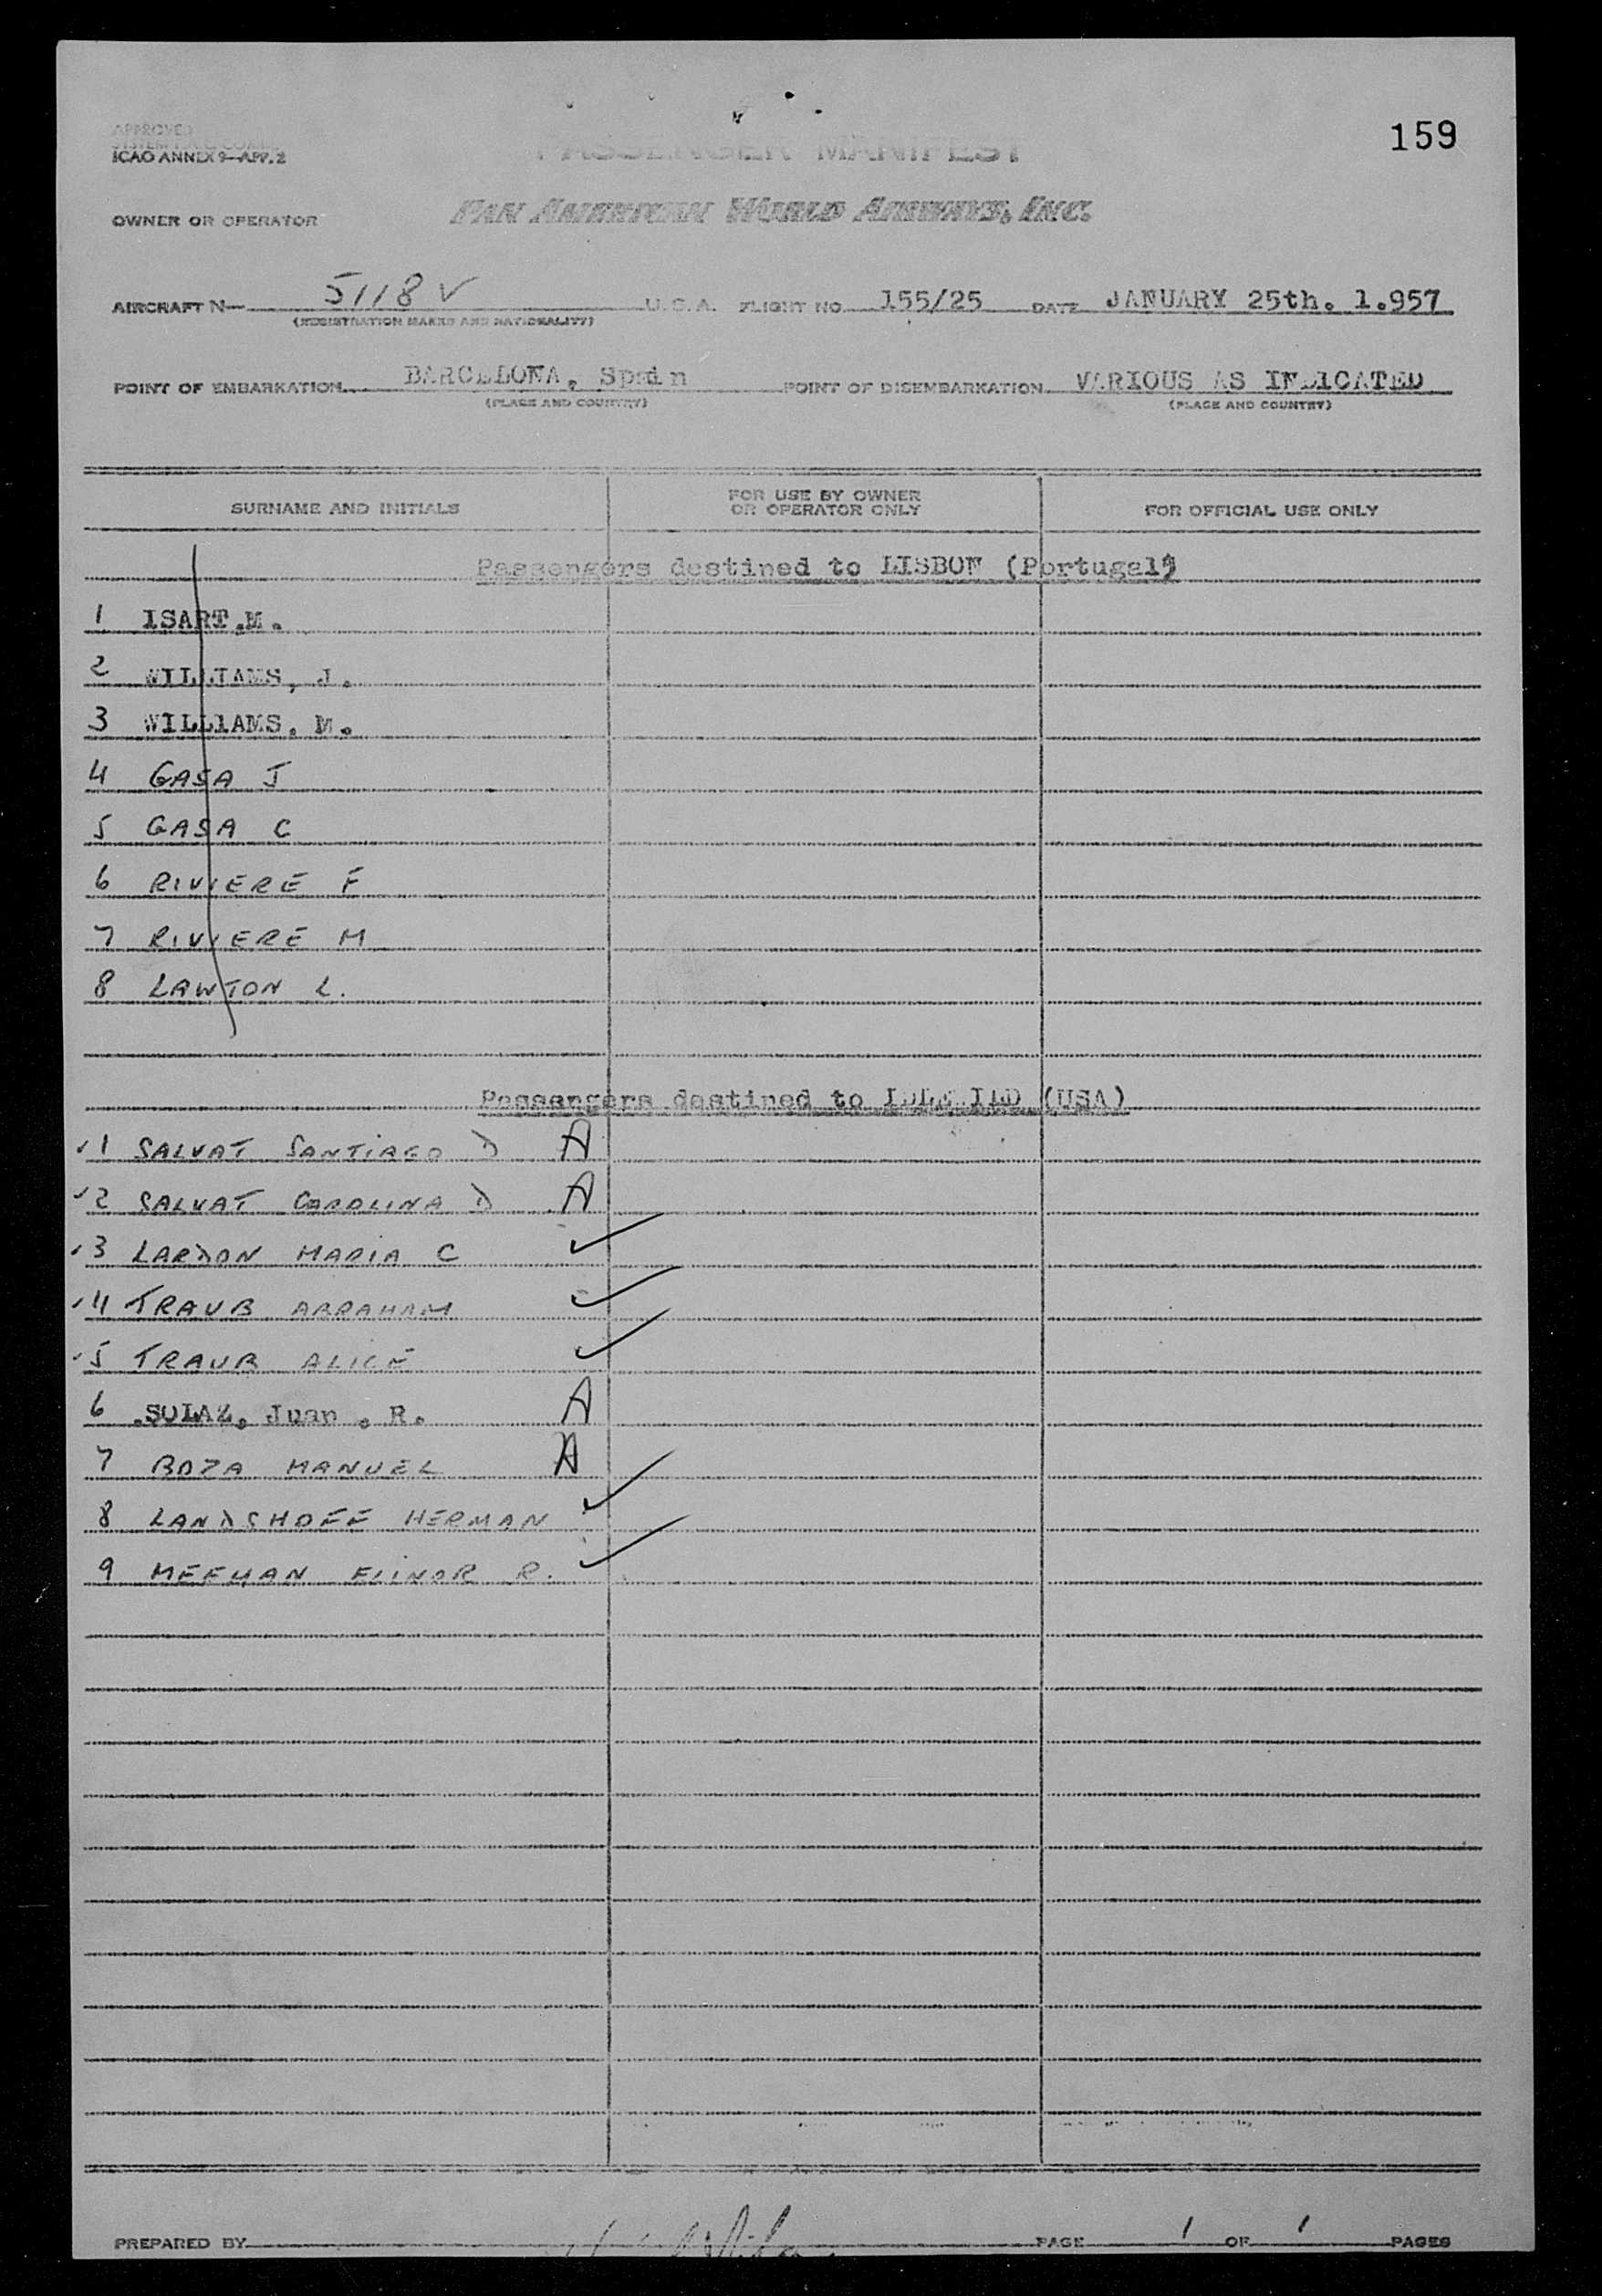 159
APPROVED
ICAO ANNEX 9—APP. 2
PASSENGER MANIFEST
OWNER OR OPERATOR
PAN AMERICAN WORLD AIRWAYS, INC.
AIRCRAFT N— 5118 V U.S.A. FLIGHT NO. 155/25 DATE JANUARY 25th. 1.957
(REGISTRATION MARKS AND NATIONALITY)
POINT OF EMBARKATION BARCELONA, Spain POINT OF DISEMBARKATION VARIOUS AS INDICATED
(PLACE AND COUNTRY) (PLACE AND COUNTRY)
SURNAME AND INITIALS FOR USE BY OWNER OR OPERATOR ONLY FOR OFFICIAL USE ONLY
Passengers destined to LISBON (Portugal)
1 ISART.M.
2 WILLIAMS, J.
3 WILLIAMS, M.
4 GASA J
5 GASA C
6 RIVIERE F
7 RIVIERE M
8 LAWTON L.
Passengers destined to IDLEWILD (USA)
✓1 SALVAT SANTIAGO D A
✓2 SALVAT CAROLINA D A
✓3 LARDON MARIA C ✓
✓4 TRAUB ABRAHAM ✓
✓5 TRAUB ALICE ✓
6 .SOLAZ, Juan . R. A
7 BOZA MANUEL A
8 LANDSHOFF HERMAN ✓
9 MEEHAN ELINOR R. ✓
PREPARED BY PAGE 1 OF 1 PAGES